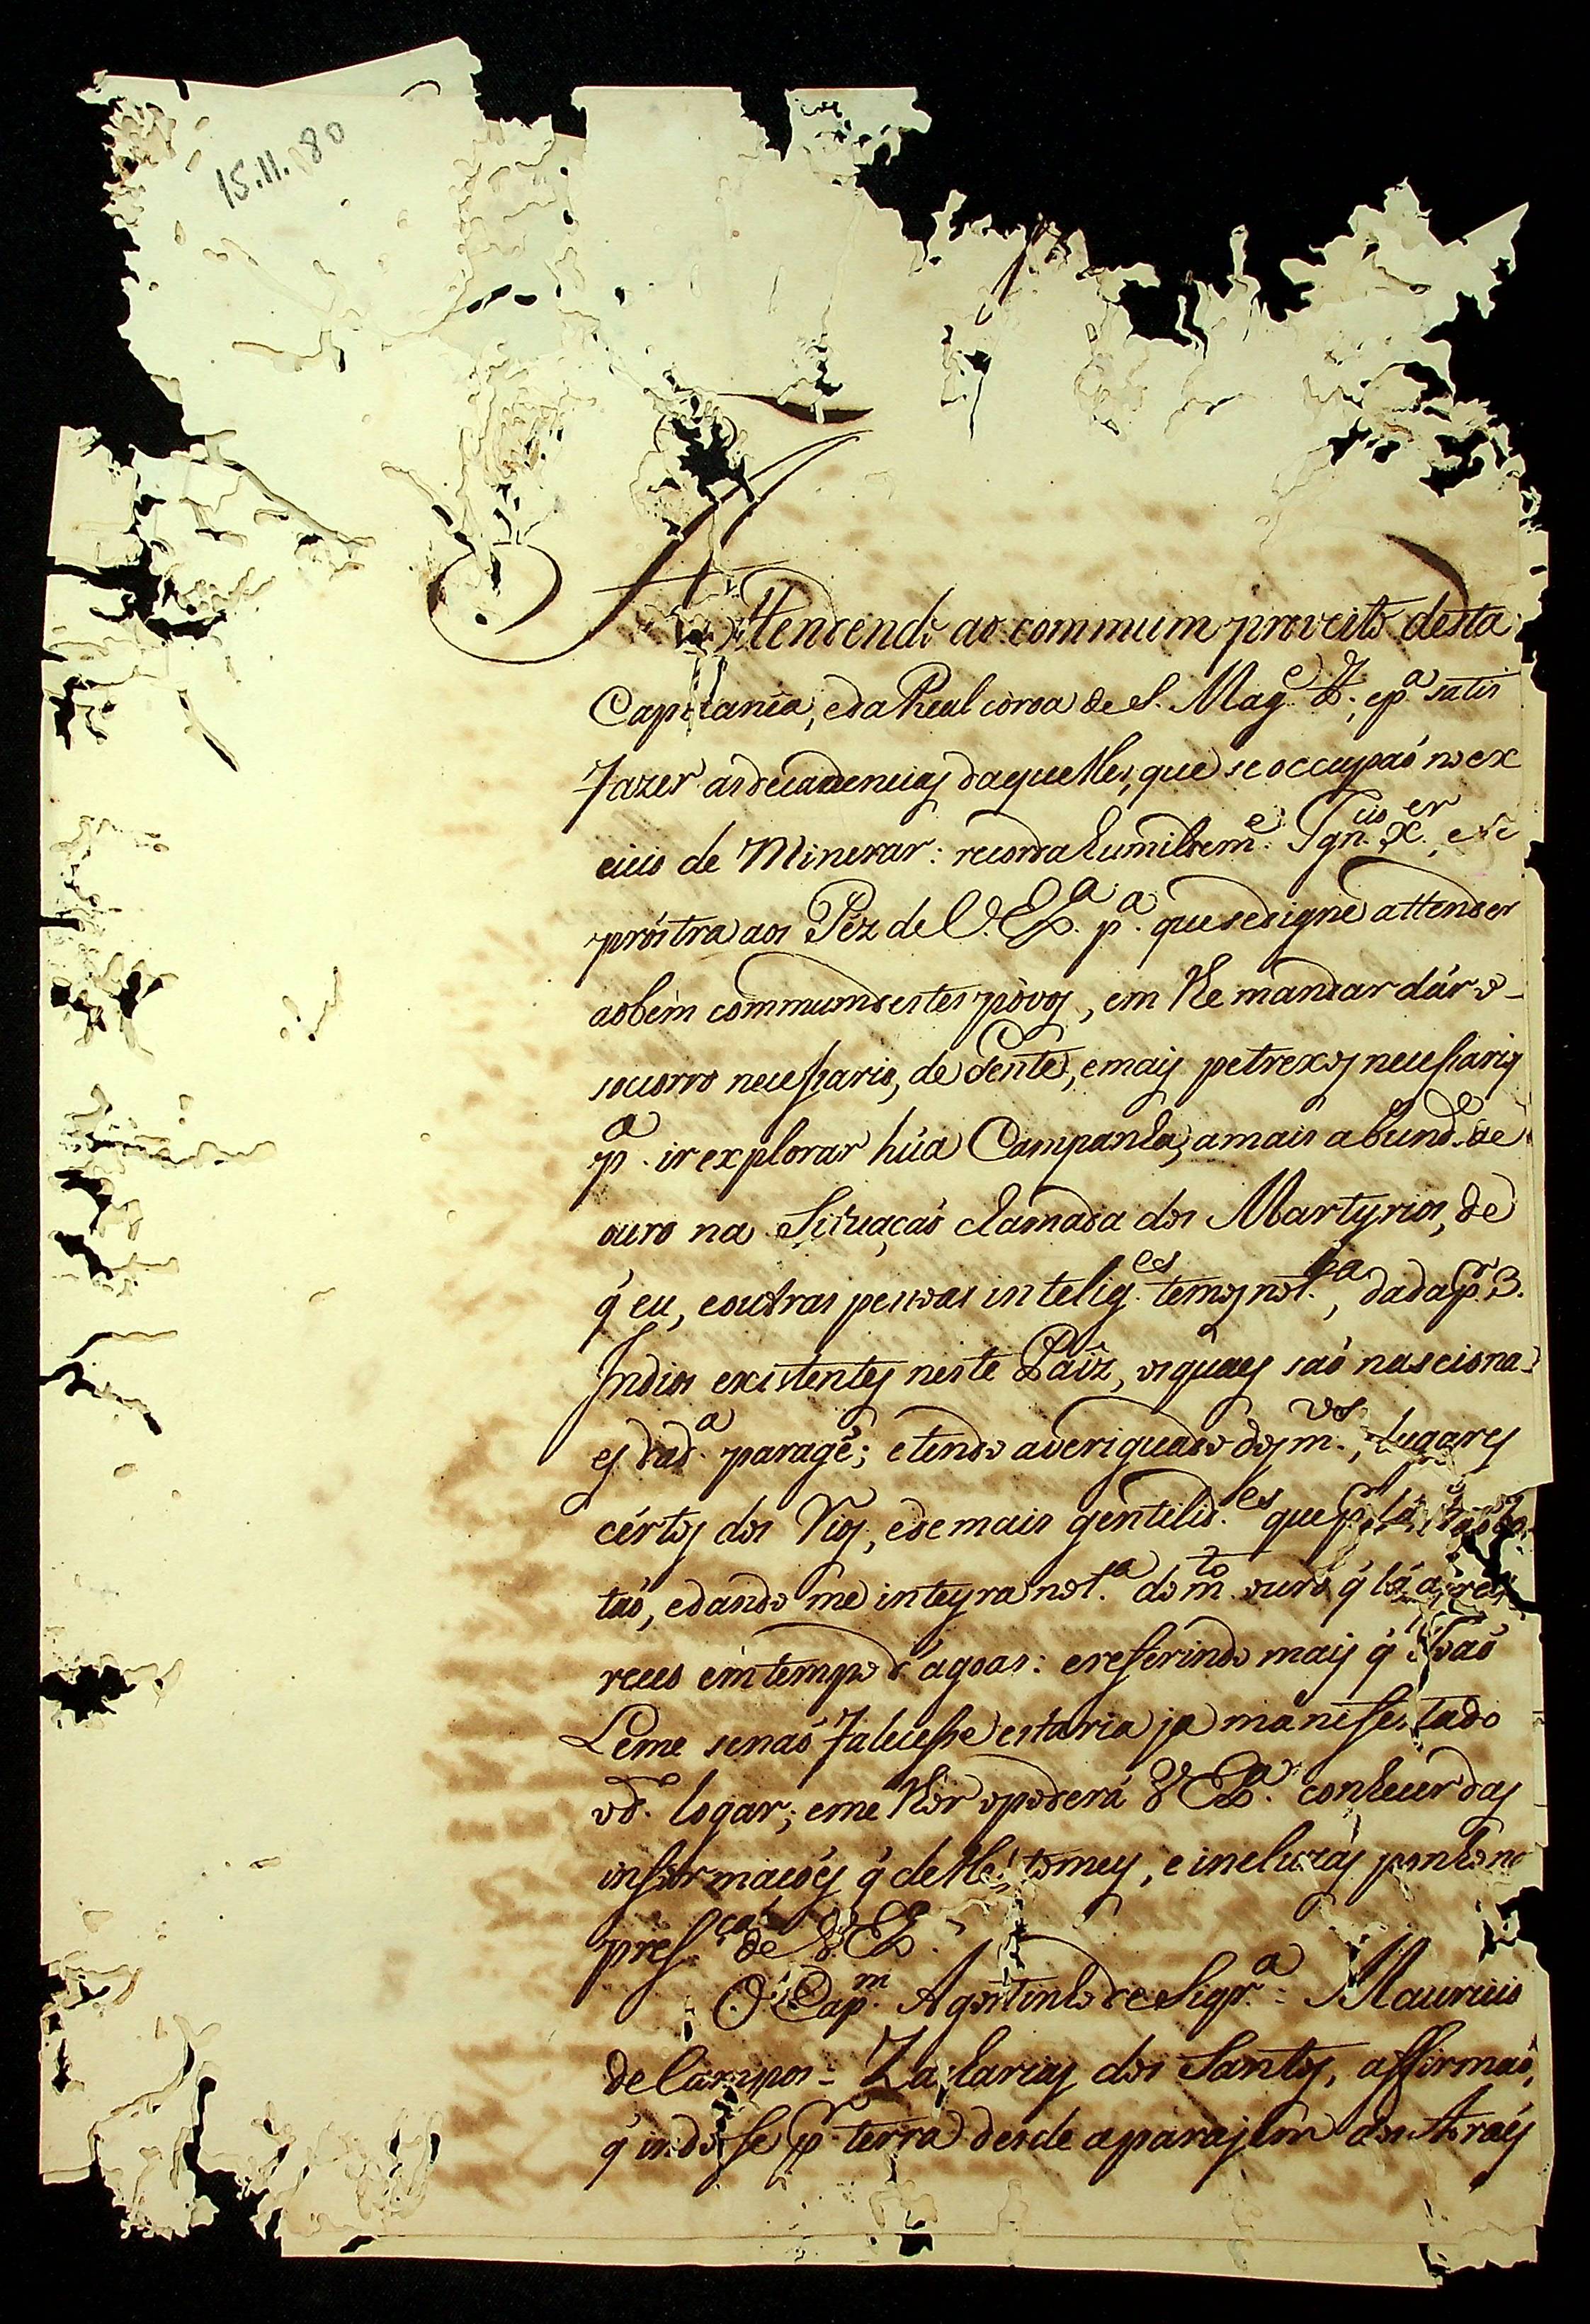 15.11.80
Attendendo ao commum proveito desta
Capitania, eda Real coroa de S. Mag.e F.; ep.a satis
fazer asdecadencias daquelles, que se occupaõ no ex
cicio de Minerar: recorda humildem.e Ign.cio X.er, e se
próstra aos Péz de V. Ex.a p.a que sedigne attender
aobem commumdestes póvos, em lhe mandar dár o
socorro necessario, de Gente, emais petrexos necessarios
p.a ir explorar húa Campanha, amais abund.e de
ouro na Situaçaõ chamada dos Martyrios, de
q̃ eu, eoutras pessoas intelig.es temos not.a, dada p.r 3.
Indios existentes neste Paîz, osquaes saõ nasciona
es dad.a paragẽ; etendo averiguado dos m.mos, lugares
cértos dos Rios, edemais gentilid.es que p.r lá
taõ, edando me integra not.a do m.to ouro q̃ lá apare
receo em tempo d'agoas: ereferindo mais q̃ Joaõ
Leme senaõ falecesse estaria ja manifestado
od.o logar; eme lhor opoderá V Ex.a conhecer das
informacoẽs q̃ delles tomey, e inclusas ponho na
pres.ça de V Ex.
O Cap.m Agostinho de Siqr.a = Mauricio
de Campos = Zacharias dos Santos, affirmaõ,
q̃ indo se p.r terra desde aparajem dos Araés